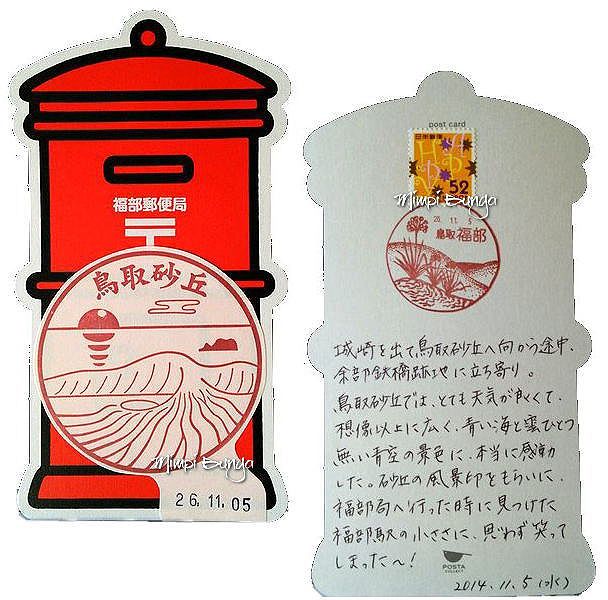 福部郵便局
鳥取砂丘
Mimpi Bunga
26.11.05
post card
日本郵便
52
Mimpi Bunga
26.11.5
鳥取福部
城崎を出て鳥取砂丘へ向かう途中、
余部鉄橋跡地に立ち寄り。
鳥取砂丘では、とても天気が良くて、
想像以上に広く、青い海と雲ひとつ
無い青空の景色に、本当に感動
した。砂丘の風景印をもらいに、
福部局へ行った時に見つけた
福部駅の小ささに、思わず笑って
しまったへ!
POSTA
COLLECT
2014.11.5(水)